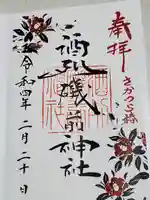 奉拝
さかつら椿
酒列礒前神社
令和四年二月二十日